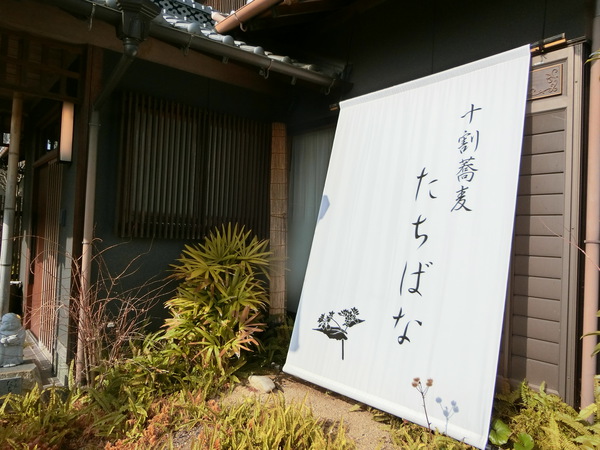 十割蕎麦
たちばな